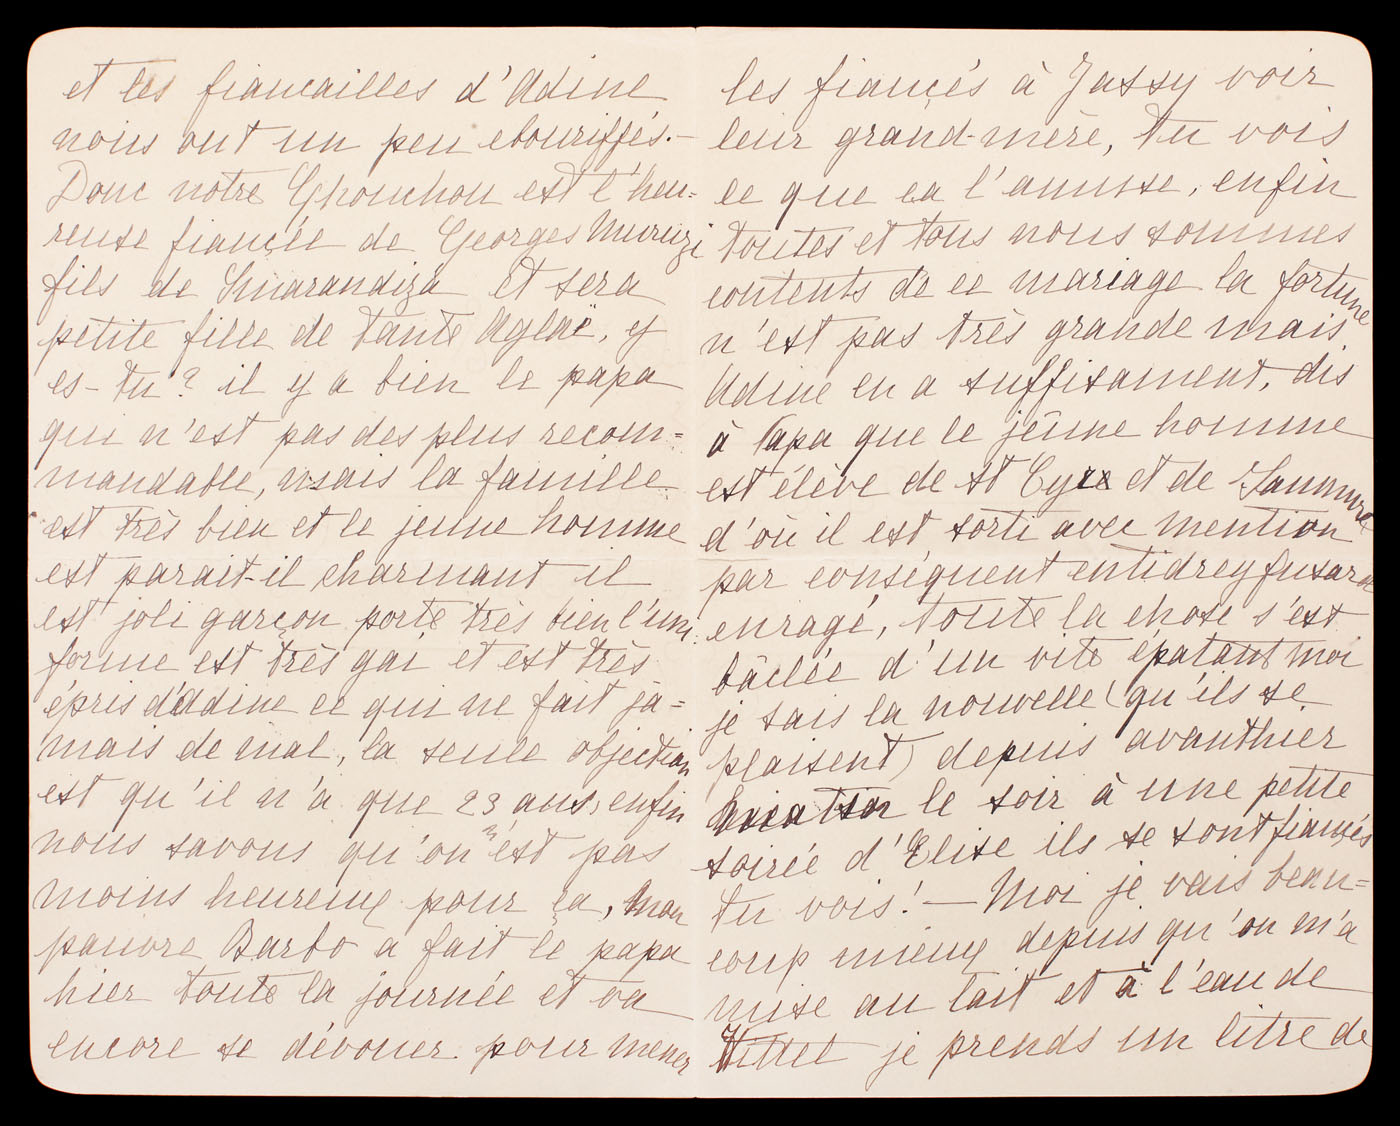 et les fiancailles d'Adine
nous ont un peu ebouriffés.—
Donc notre Chouchou est l'heu=
reuse fiancée de Georges Muruzi
fils de Smarandiza et sera
petite fille de tante Aglaë, y
es-tu? il y a bien le papa
qui n'est pas des plus recom=
mandable, mais la famille
est très bien et le jeune homme
est parait-il charmant il
est joli garçon porte très bien l'uni-
forme est très gai et est très
épris d'Adine ce qui ne fait ja=
mais de mal, la seule objection
est qu'il n'a que 23 ans, enfin
nous savons qu'on n'est pas
moins heureux pour ça, mon
pauvre Barbo a fait le papa
hier toute la journée et va
encore se dévouer pour mener
les fiancés à Jassy voir
leur grand-mère, tu vois
ce que ca l'amuse, enfin
toutes et tous nous sommes
contents de ce mariage la fortune
n'est pas très grande mais
Adine en a suffisament, dis
à Papa que le jeune homme
est élève de St Cyre et de Saumure
d'où il est sorti avec mention
par conséquent entidreyfusard
enragé, toute la chose s'est
bâclée d'un vite épatant moi
je sais la nouvelle (qu'ils se
plaisent) depuis avanthier
le soir à une petite
soirée d'Elise ils se sont fiancés
tu vois! — Moi je vais beau=
coup mieux depuis qu'on m'a
mise au lait et à l'eau de
Vittel je prends un litre de